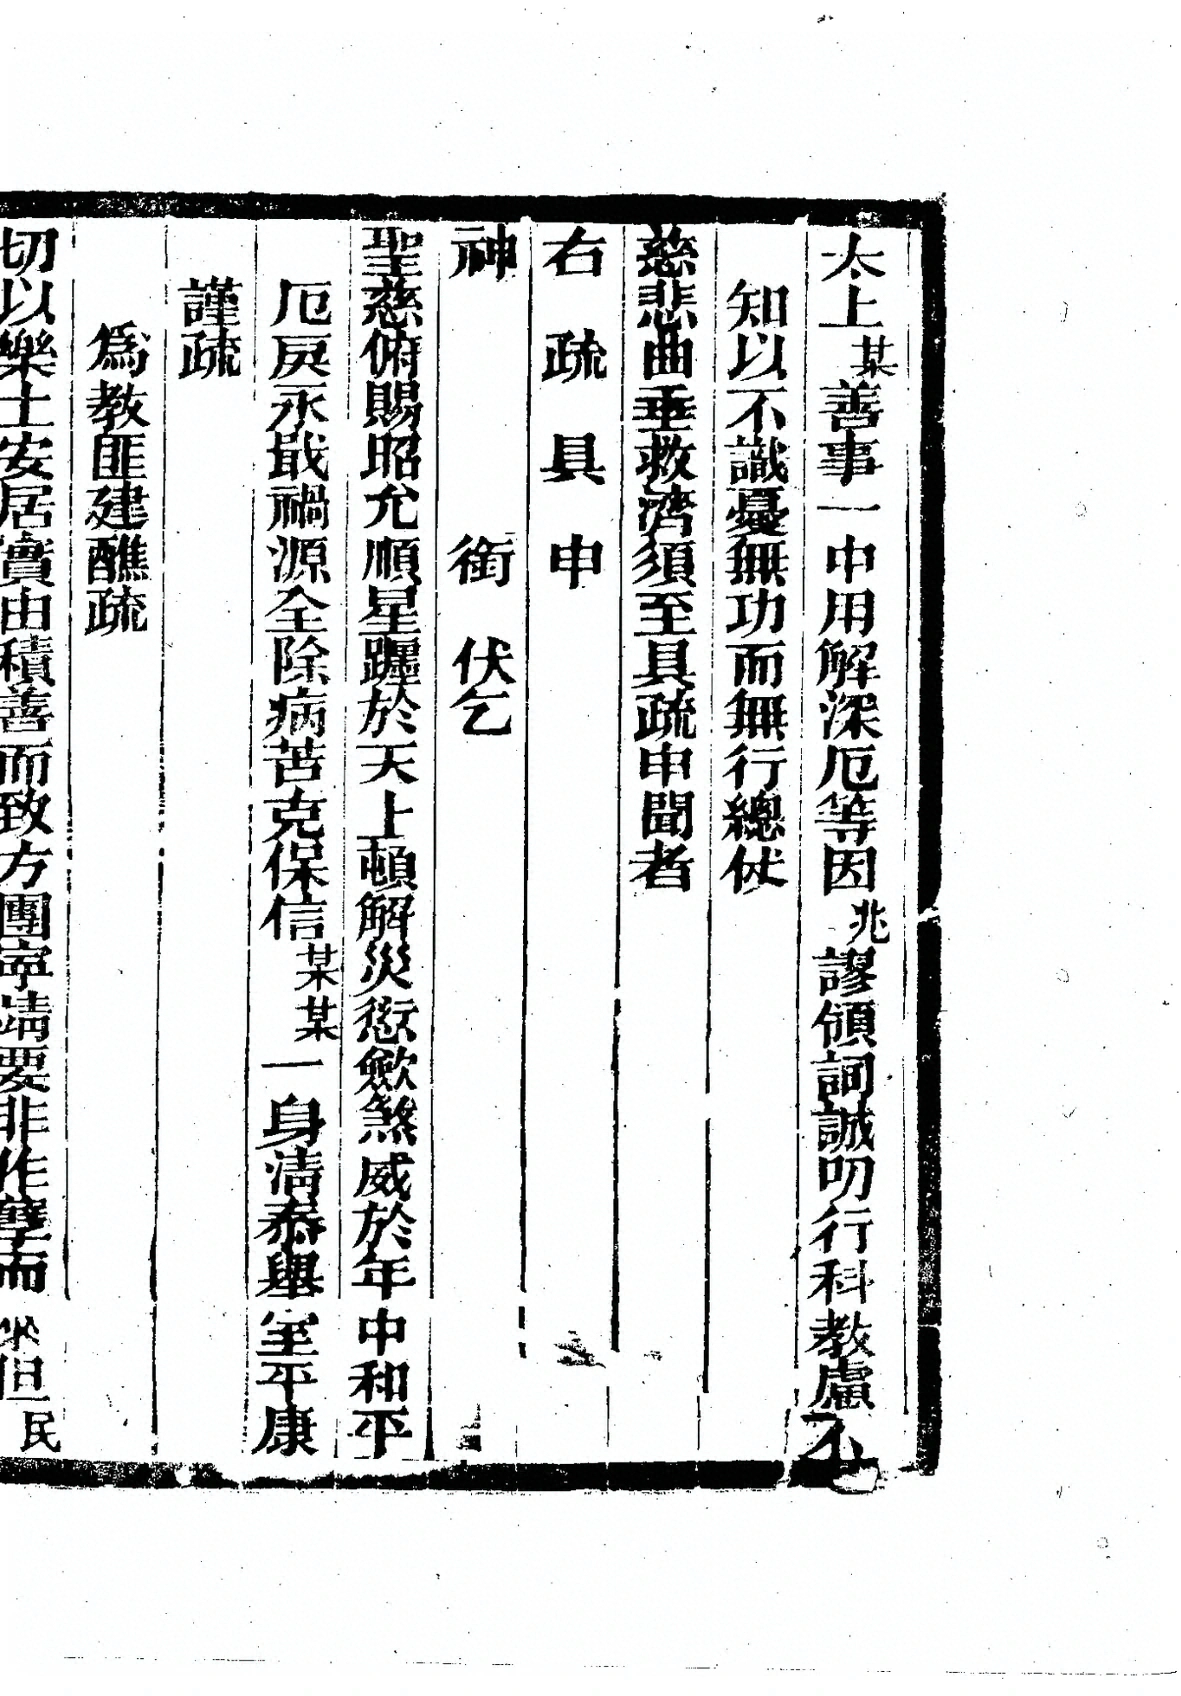 太上某善事一中用解深厄等因兆謬領詞誠叨行科教慮不
知以不識憂無功而無行總仗
慈悲曲垂救濟須至具疏申聞者
右疏具申
神銜伏乞
聖慈俯賜昭允順星躔於天上頓解災愆歛煞威於年中和平
厄戾永戢禍源全除病苦克保信某某一身清泰舉室平康
謹疏
爲教匪建醮疏
切以樂土安居實由積善而致方團寧靖要非作孽而來但民